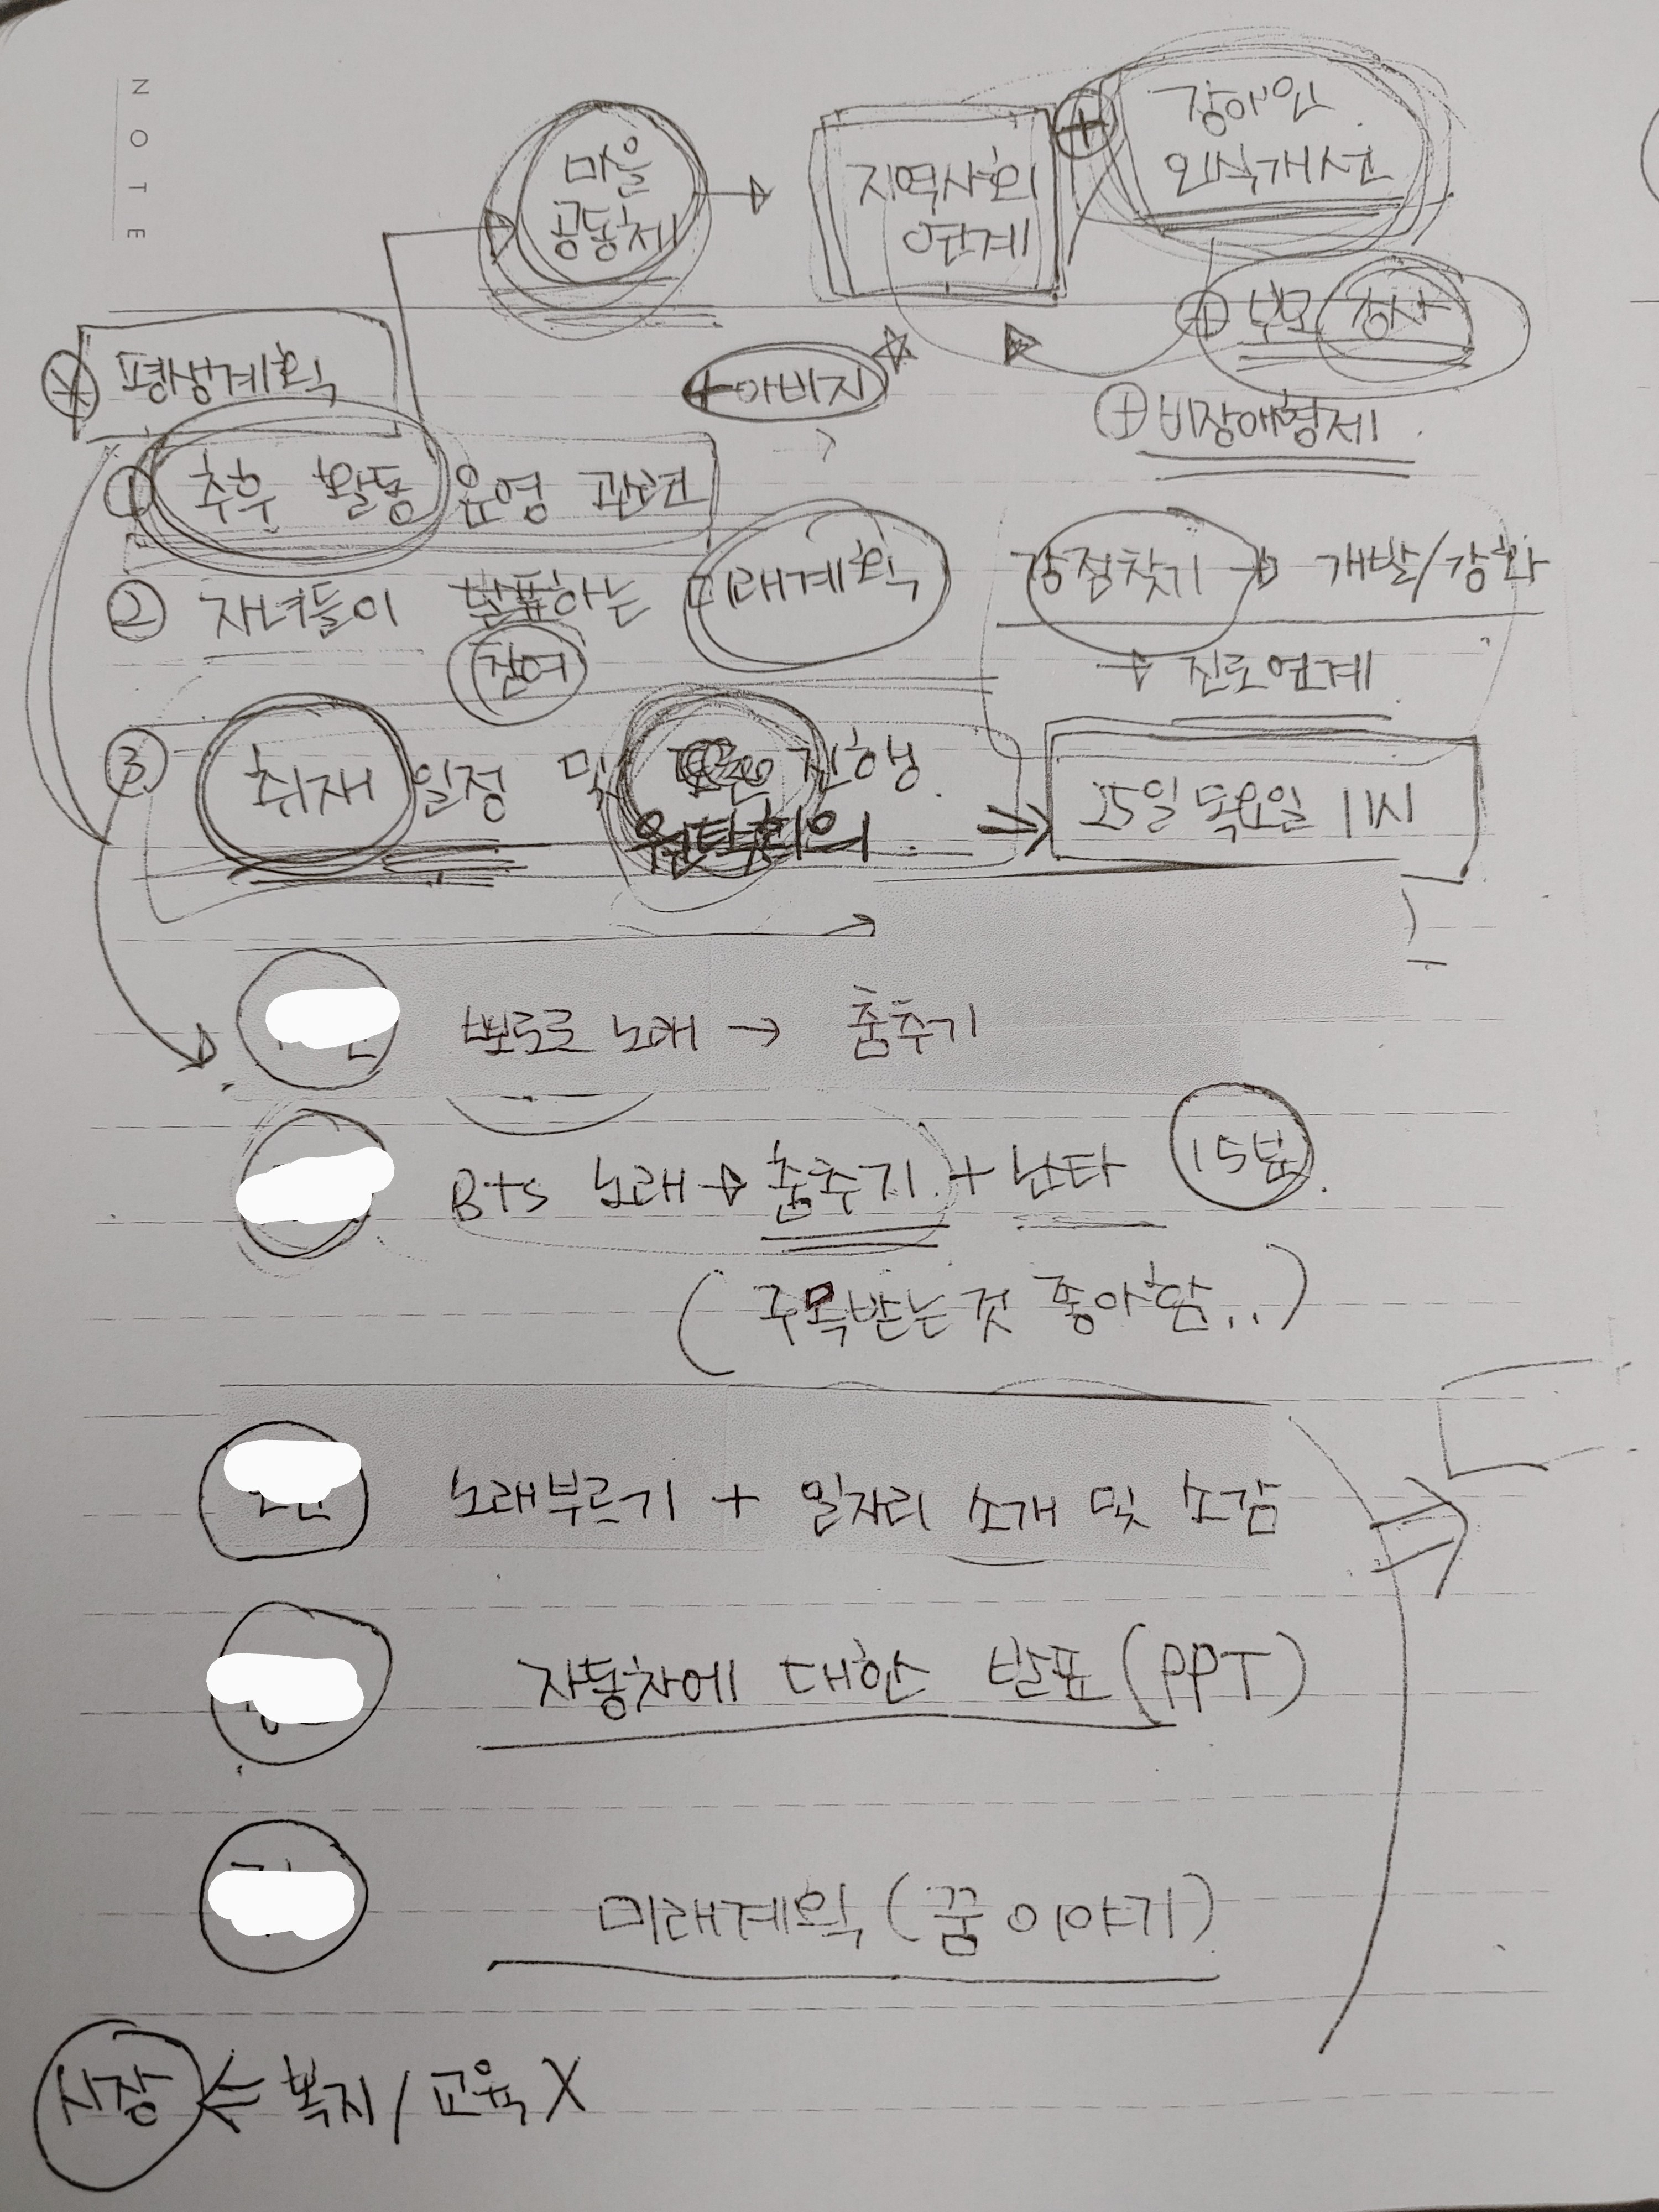 NOTE
마을
공동체
지역사회
연계
+ 장애인
인식개선
+ 부모 강사
+ 아버지 ☆
+ 비장애형제
* 평생계획
① 추후 활동 운영 관련
② 자녀들이 발표하는 미래계획
참여
강점찾기 → 개발/강화
→ 진로연계
③ 취재 일정 및 진행
원탁회의
⇒ 25일 목요일 11시
뽀로로 노래 → 춤추기
BTS 노래 → 춤추기 + 난타 15분
(주목받는것 좋아함..)
노래부르기 + 일자리 소개 및 소감
자동차에 대한 발표 (PPT)
미래계획 (꿈 이야기)
시장 ⇐ 복지/교육 X